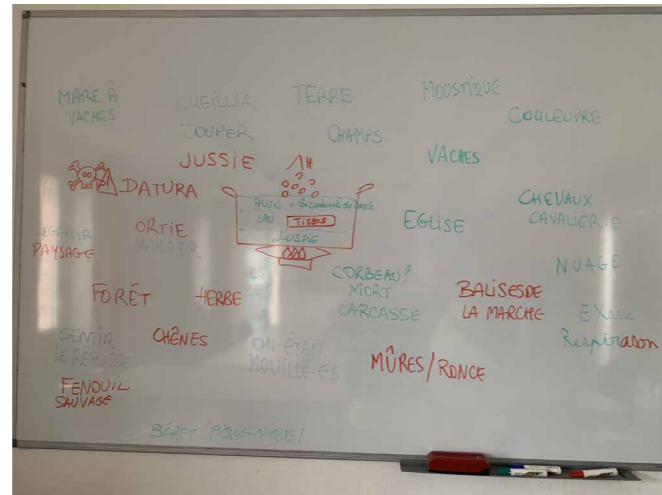 MARE À
VACHES
CUEILLIR
COUPER
TERRE
CHAMPS
MOUSTIQUE
COULEUVRE
VACHES
JUSSIE
1H
DATURA
ALUN + Bicarbonate de soude
EAU TISSUS
JUSSIE
EGLISE
CHEVAUX
CAVALIER·E
PAYSAGE
ORTIE
MANGER
NUAGE
FORÊT
HERBE
CORBEAU?
MORT
CARCASSE
BALISES DE
LA MARCHE
Respirason
SENTIR
CHÊNES
ON ÉTAIT
MOUILLÉ·ES
MÛRES/RONCE
FENOUIL
SAUVAGE
BÉRET/PIQUENIQUE/